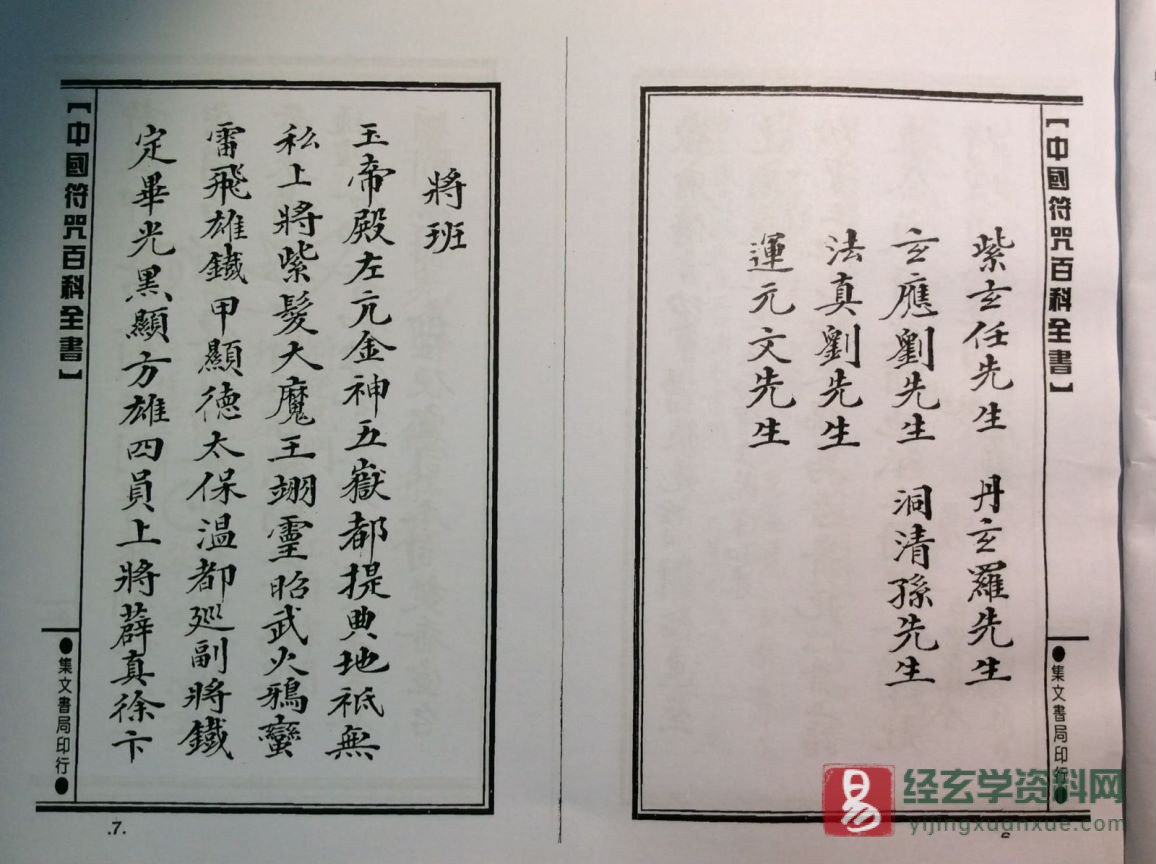 【中國符咒百科全書】
紫玄任先生　丹玄羅先生
玄應劉先生　洞清孫先生
法真劉先生
運元文先生
●集文書局印行●
將班
玉帝殿左亢金神五嶽都提典地祇無
私上將紫髮大魔王翊霊昭武火鴉蠻
雷飛雄鐵甲顯德太保溫都廵副將鐵
定畢光黑顯方雄四員上將薜真徐卞
【中國符咒百科全書】
●集文書局印行●
.7.
易
经玄学资料网
yijingxuanxue.com